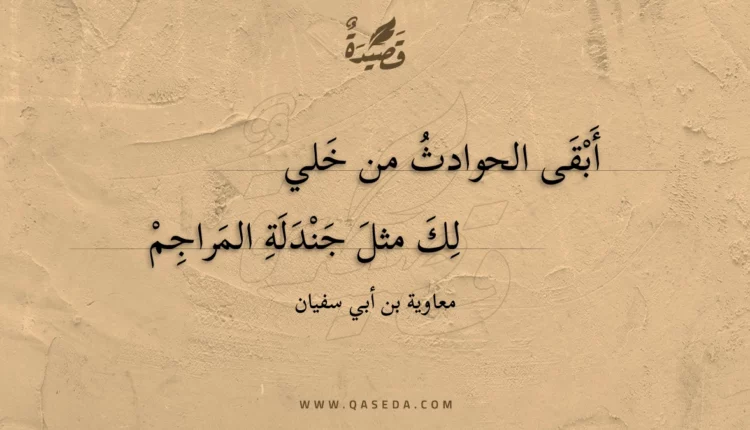 قَصِيدَةٌ
أَبْقَى الحوادثُ من خَلي
لِكَ مثلَ جَنْدَلَةِ المَراجِمْ
معاوية بن أبي سفيان
WWW.QASEDA.COM